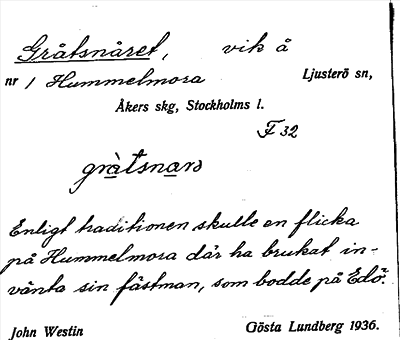 Gråtsnåret, vik å
nr 1 Hummelmora Ljusterö sn,
Åkers skg, Stockholms l.
F 32
gràtsnarə
Enligt traditionen skulle en flicka
på Hummelmora där ha brukat in-
vänta sin fästman, som bodde på Edö.
John Westin Gösta Lundberg 1936.